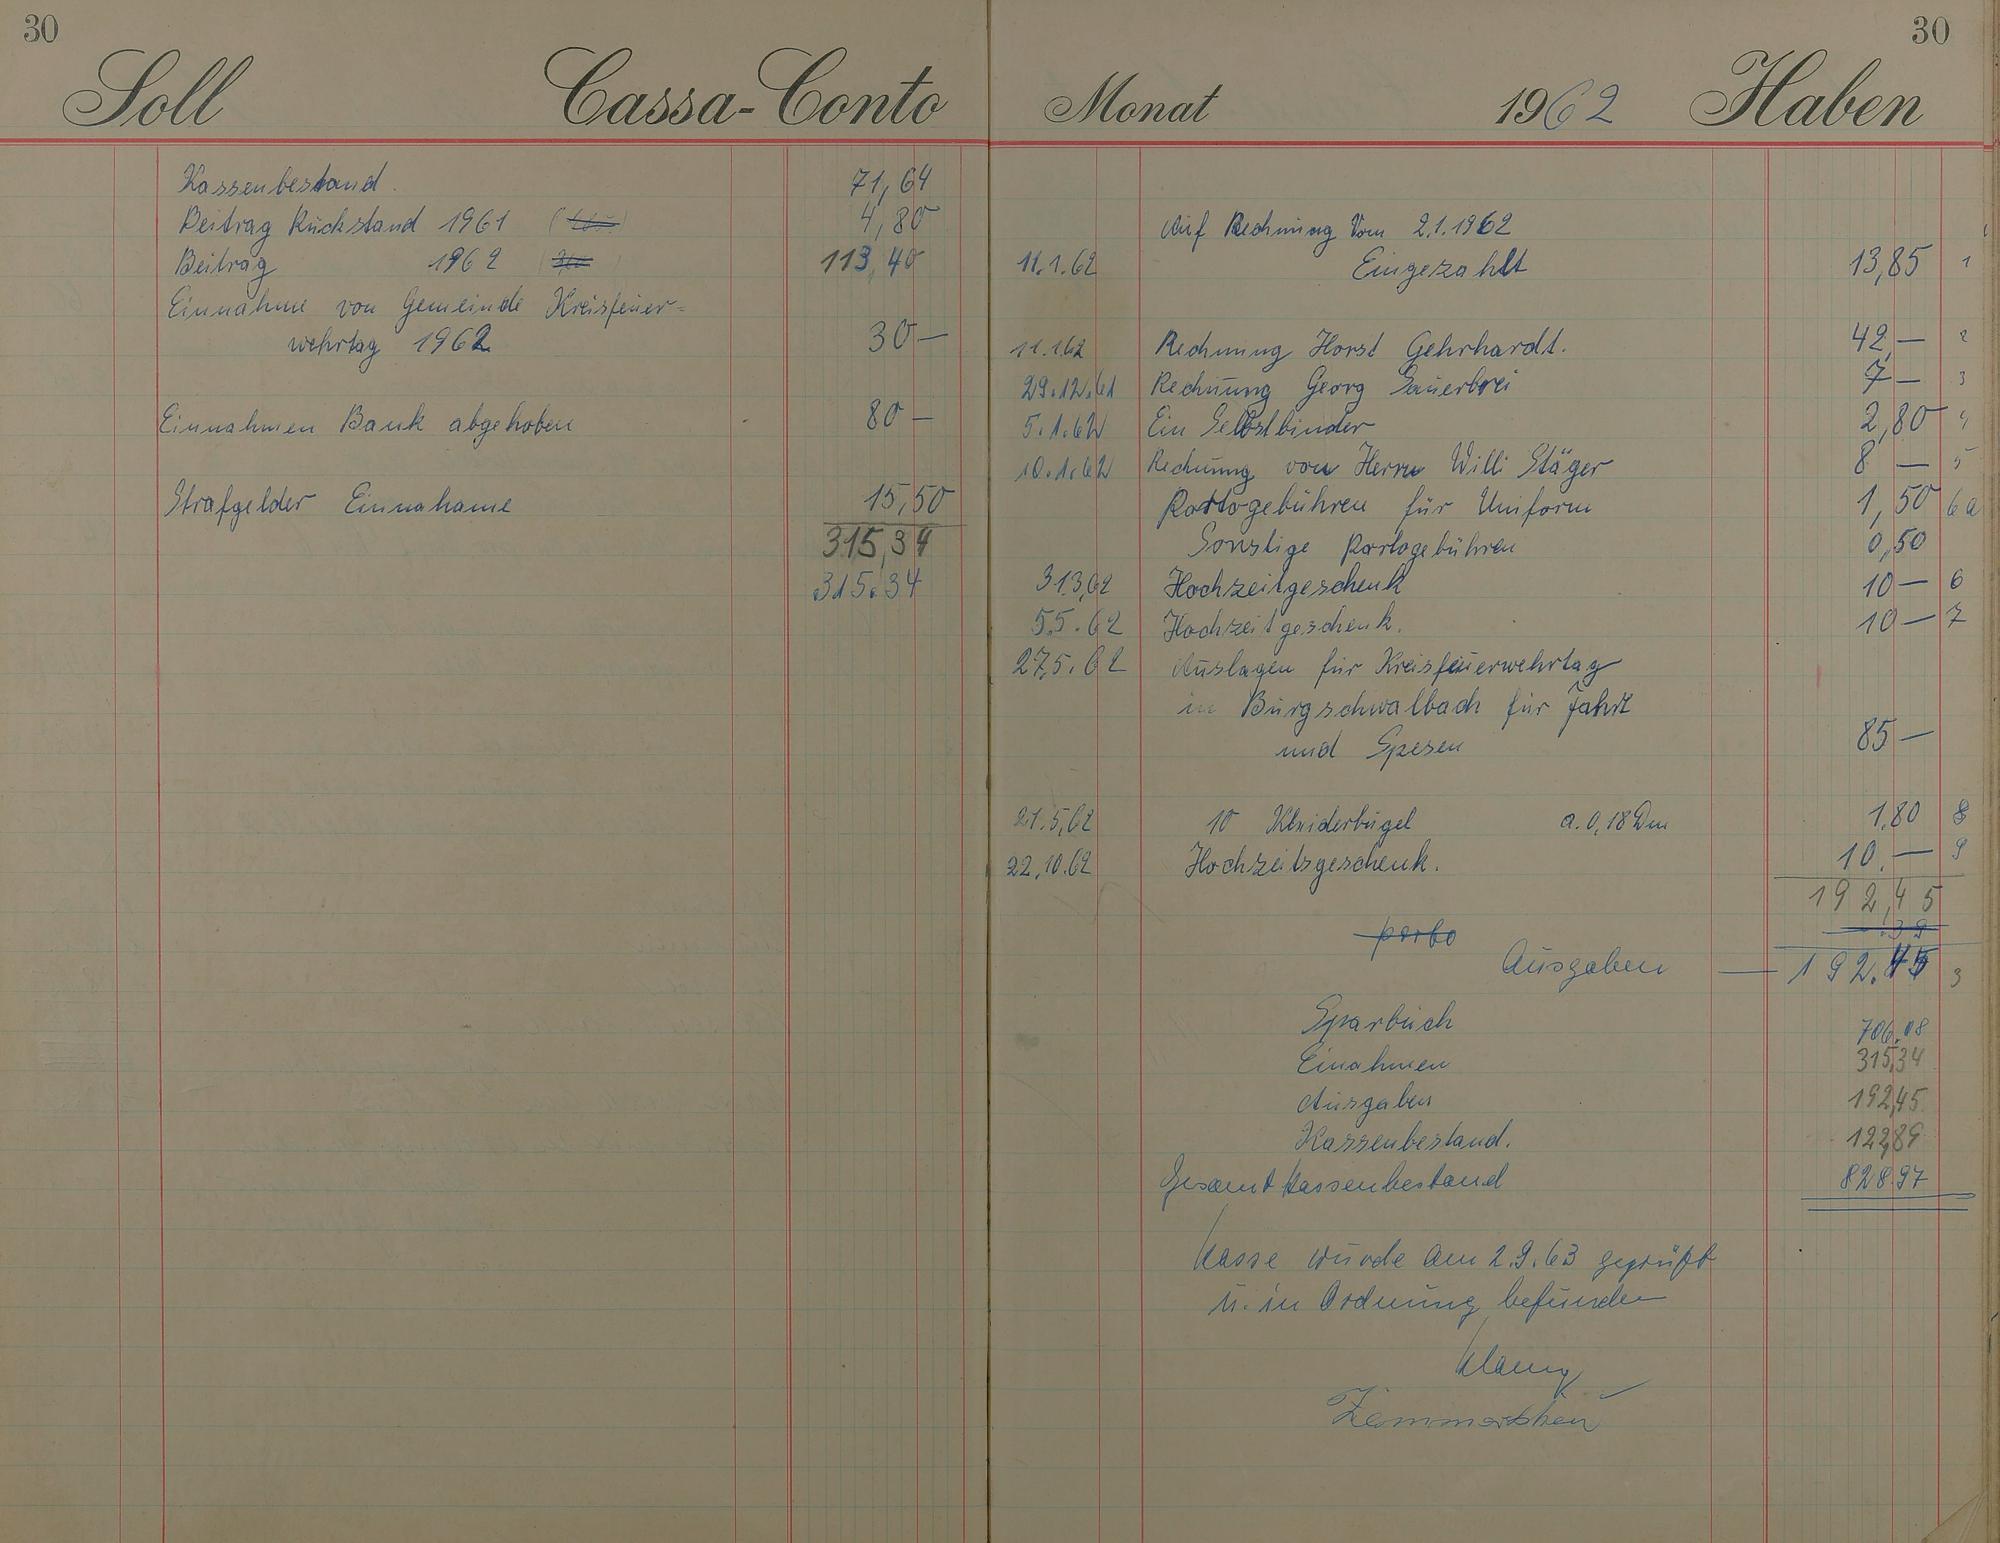 30
Soll Cassa-Conto
Kassenbestand. 71,64
Beitrag Rückstand 1961 4,80
Beitrag 1962 113,40
Einnahme von Gemeinde Kreisfeuer=
wehrtag 1962 30 —
Einnahmen Bank abgehoben 80 —
Strafgelder Einnahame 15,50
315,34
315.34
30
Monat 1962 Haben
Auf Rechnung Vom 2.1.1962
11.1.62 Eingezahlt 13,85 1
11.1.62 Rechnung Horst Gehrhardt. 42,— 2
29.12.61 Rechnung Georg Sauerbrei 7 — 3
5.1.62 Ein Selbstbinder 2,80 4
10.1.62 Rechnung von Herrn Willi Stäger 8 — 5
Portogebühren für Uniform 1,50 6a
Sonstige Portogebühren 0,50
31.3,62 Hochzeitgeschenk 10 — 6
5.5.62 Hochzeitgeschenk. 10 — 7
27.5.62 Auslagen für Kreisfeuerwehrtag
in Burgschwalbach für Fahrt
und Spesen 85 —
21.5,62 10 Kleiderbügel a. 0,18 Dm 1.80 8
22.10.62 Hochzeitsgeschenk. 10.— 9
192,45
porto .39
Ausgaben — 192.45 3
Sparbuch 706.08
Einahmen 315,34
Ausgaben 192,45
Kassenbestand. 122,89
Gesamt Kassenbestand 828.97
Kasse wurde am 2.9.63 geprüft
u. in Ordnung befunden